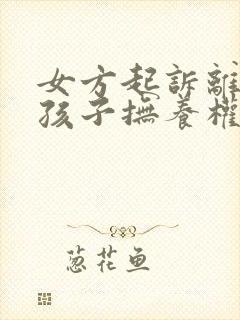 女方起訴離
孩子撫養權
葱花鱼